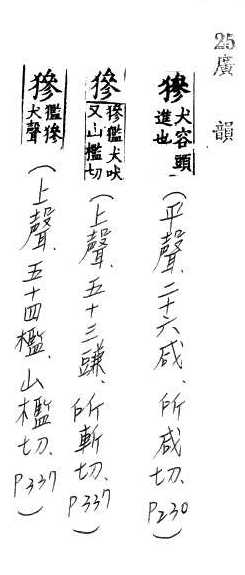 25廣韻
獑犬容頭進也(平聲、二十六咸、所咸切、P230)
獑獑㺝犬吠又山檻切(上聲、五十三豏、所斬切、P337)
獑㺝獑犬聲(上聲、五十四檻、山檻切、P337)